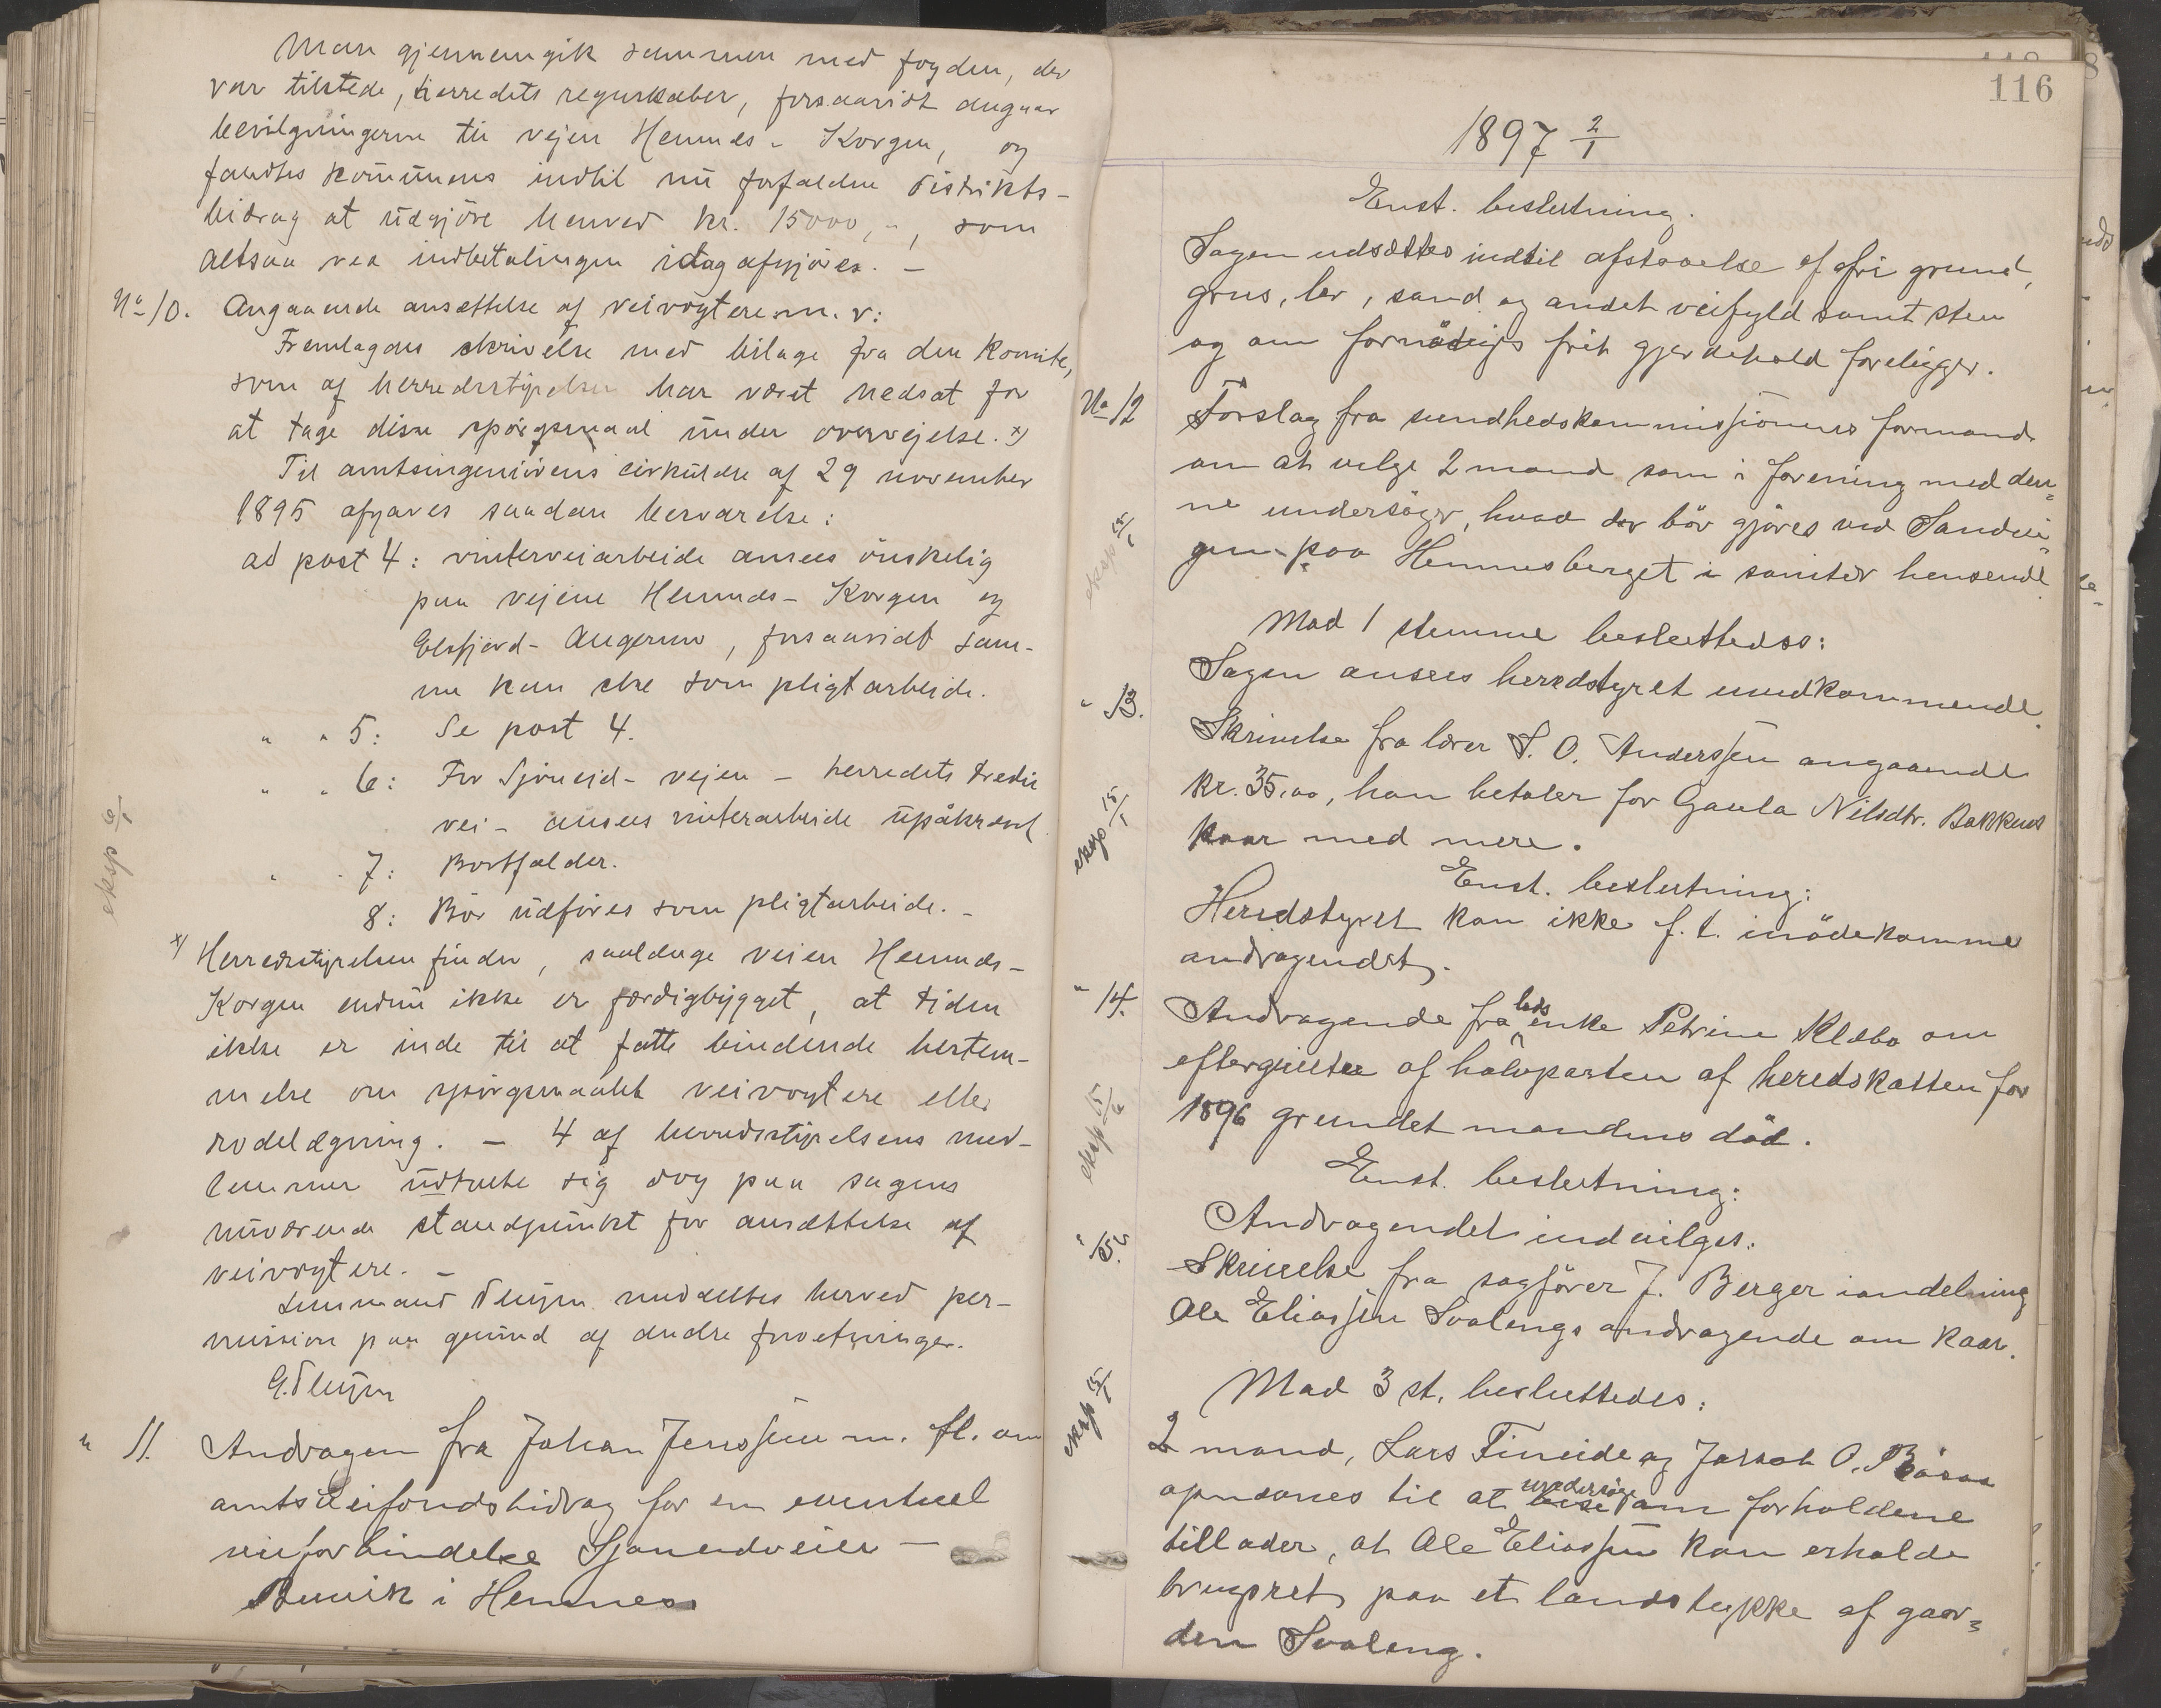 Man gjennemgik sammen med fogden, der
var tilstede, herredets regnskaber, forsaavidt angaar
bevilgningerne til vejen Hemnes - Korgen, og
fandtes kommunens indtil nu forfaldne distrikts-
bidrag at udgjöre henved kr. 15000,-, som
altsaa ved indbetalingen idag afgjöres. -
No 10. Angaaende ansættelse af veivogtere m. v:
Fremlagdes skrivelse med bilage fra den komite,
som af herredsstyrelsen har været nedsat for
at tage disse spörgsmaal under overvejelse. x)
Til amtsingeniörens cirkulære af 29 november
1895 afgaves saadan besvarelse:
ad post 4: vinterveiarbeide ansees önskelig
paa vejene Hemnes - Korgen og
Elsfjord - Angermo, forsaavidt sam-
me kan ske som pligtarbeide.
" " 5: Se post 4.
" " 6: For Sjoneid - vejen - herredets tredie
vei - ansees vinterarbeide upåkrævd
" " 7: Bortfalder.
8: Bör udföres som pligtarbeide. -
eksp 6/1
x) Herredsstyrelsen finder, saalænge veien Hemnes -
Korgen endnu ikke er færdigbygget, at tiden
ikke er inde til at fatte bindende bestem-
melse om spörgsmaalet veivogtere eller
rodelægning. - 4 af herredsstyrelsens med-
lemmer udtalte sig dog paa sagens
nuværende standpunkt for ansættelse af
veivogtere. -
Lensmand meddeltes herved per-
mission paa grund af andre forretninger.
" 11. Andragen fra Johan Jenssen m. fl. om
amtsveifondsbidrag for en eventuel
veiforbindelse Sjonendveien -
i Hemnes
116
1897 2/1
Enst. beslutning.
Sagen udsættes indtil afstaaelse af fri grund,
grus, ler, sand og andet veifyld samt sten
og om fornödiges frit gjerdehold foreligger.
No 12 Forslag fra sundhedskommissionens formand
om at velge 2 mand som i forening med den=
ne undersöger, hvad der bör gjöres ved Sandvi=
gen paa Hemnesberget i sanitær henseende
eksp 15/1
Mod 1 stemme besluttedes:
Sagen ansees herredstyret uvedkommende.
" 13. Skrivelse fra lærer S. O. Anderssen angaaende
kr. 35,00, han betaler for Gaula Nilsdtr. Bakkens
kaar med mere.
eksp 15/1
Enst. beslutning:
Heredstyret kan ikke f. t. imödekomme
andragendet.
" 14. Andragende fra leds enke Petrine Klæbo om
eftergivelse af halvparten af heredskatten for
1896 grundet mandens död.
eksp 15/1
Enst. beslutning:
Andragendet indvilges.
" 15. Skrivelse fra sagförer J. Berger i andledning
Ole Eliassen Svalengs andragende om kaar.
eksp 15/1
Mod 3 st. besluttedes:
2 mand, Lars Fineide og Jakob O.
opnævnes til at undersöge om forholdene
tillader, at Ole Eliassen kan erholde
brugsret paa et landstykke af gaar=
den Svaleng.